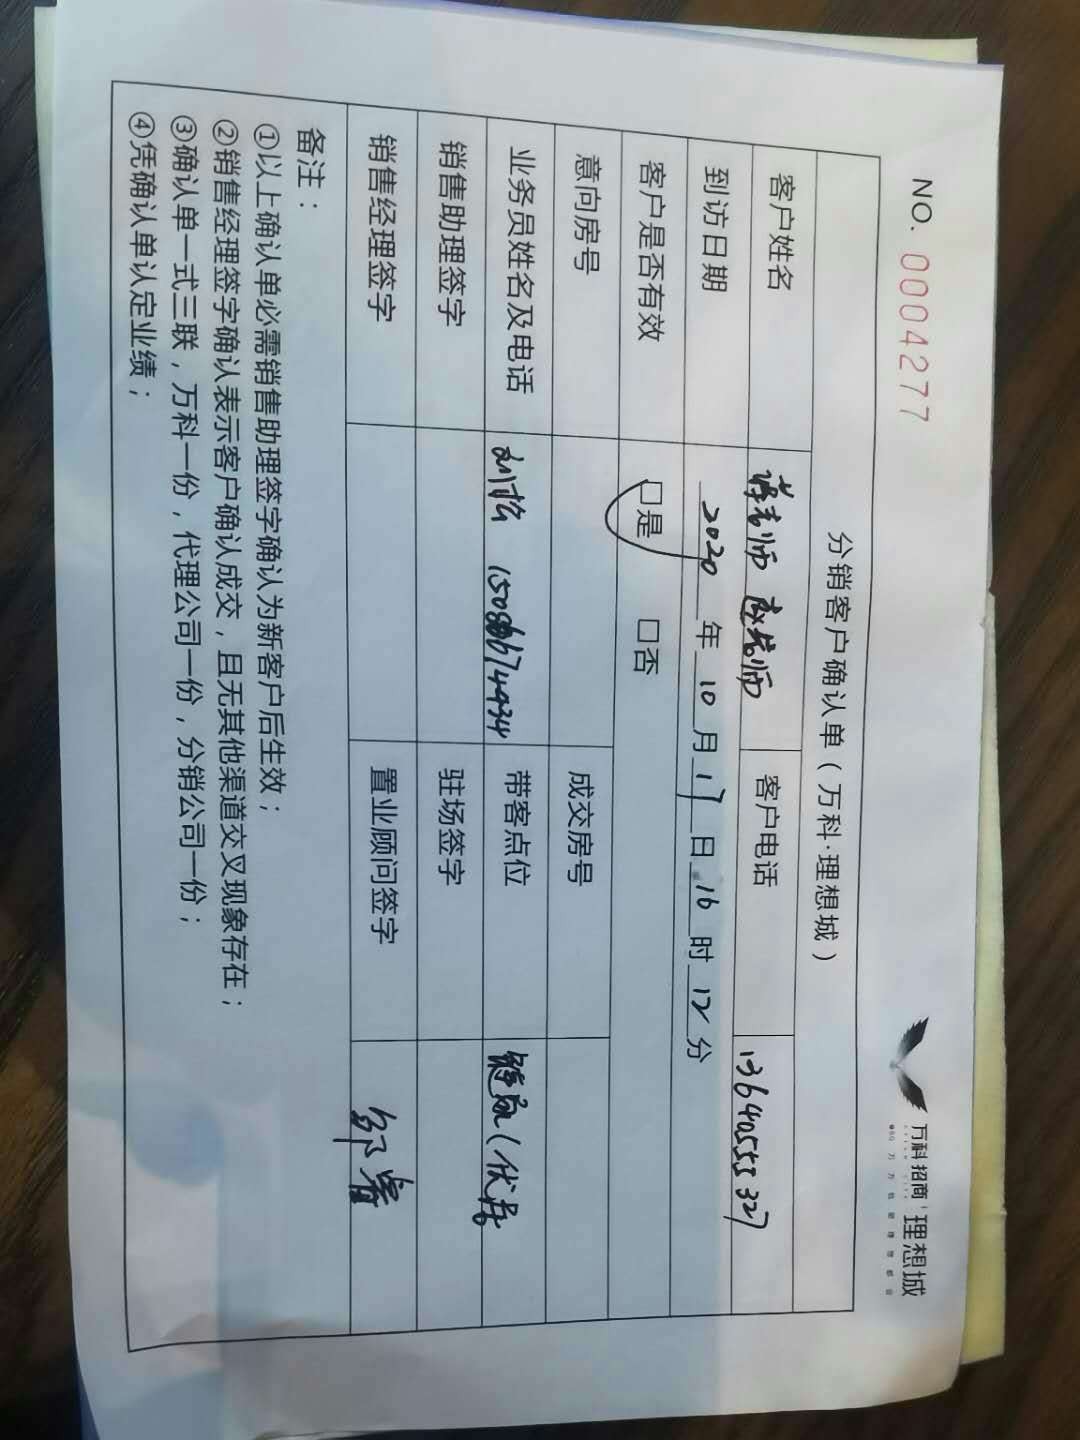 NO. 0004277
万科招商 理想城
分销客户确认单（万科·理想城）
客户姓名 客户电话 13640555327
到访日期 2020年10月17日16时12分
客户是否有效 □是 □否
意向房号 成交房号
业务员姓名及电话 带客点位
销售助理签字 驻场签字
销售经理签字 置业顾问签字
备注：
①以上确认单必需销售助理签字确认为新客户后生效；
②销售经理签字确认表示客户确认成交，且无其他渠道交叉现象存在；
③确认单一式三联，万科一份，代理公司一份，分销公司一份；
④凭确认单认定业绩；